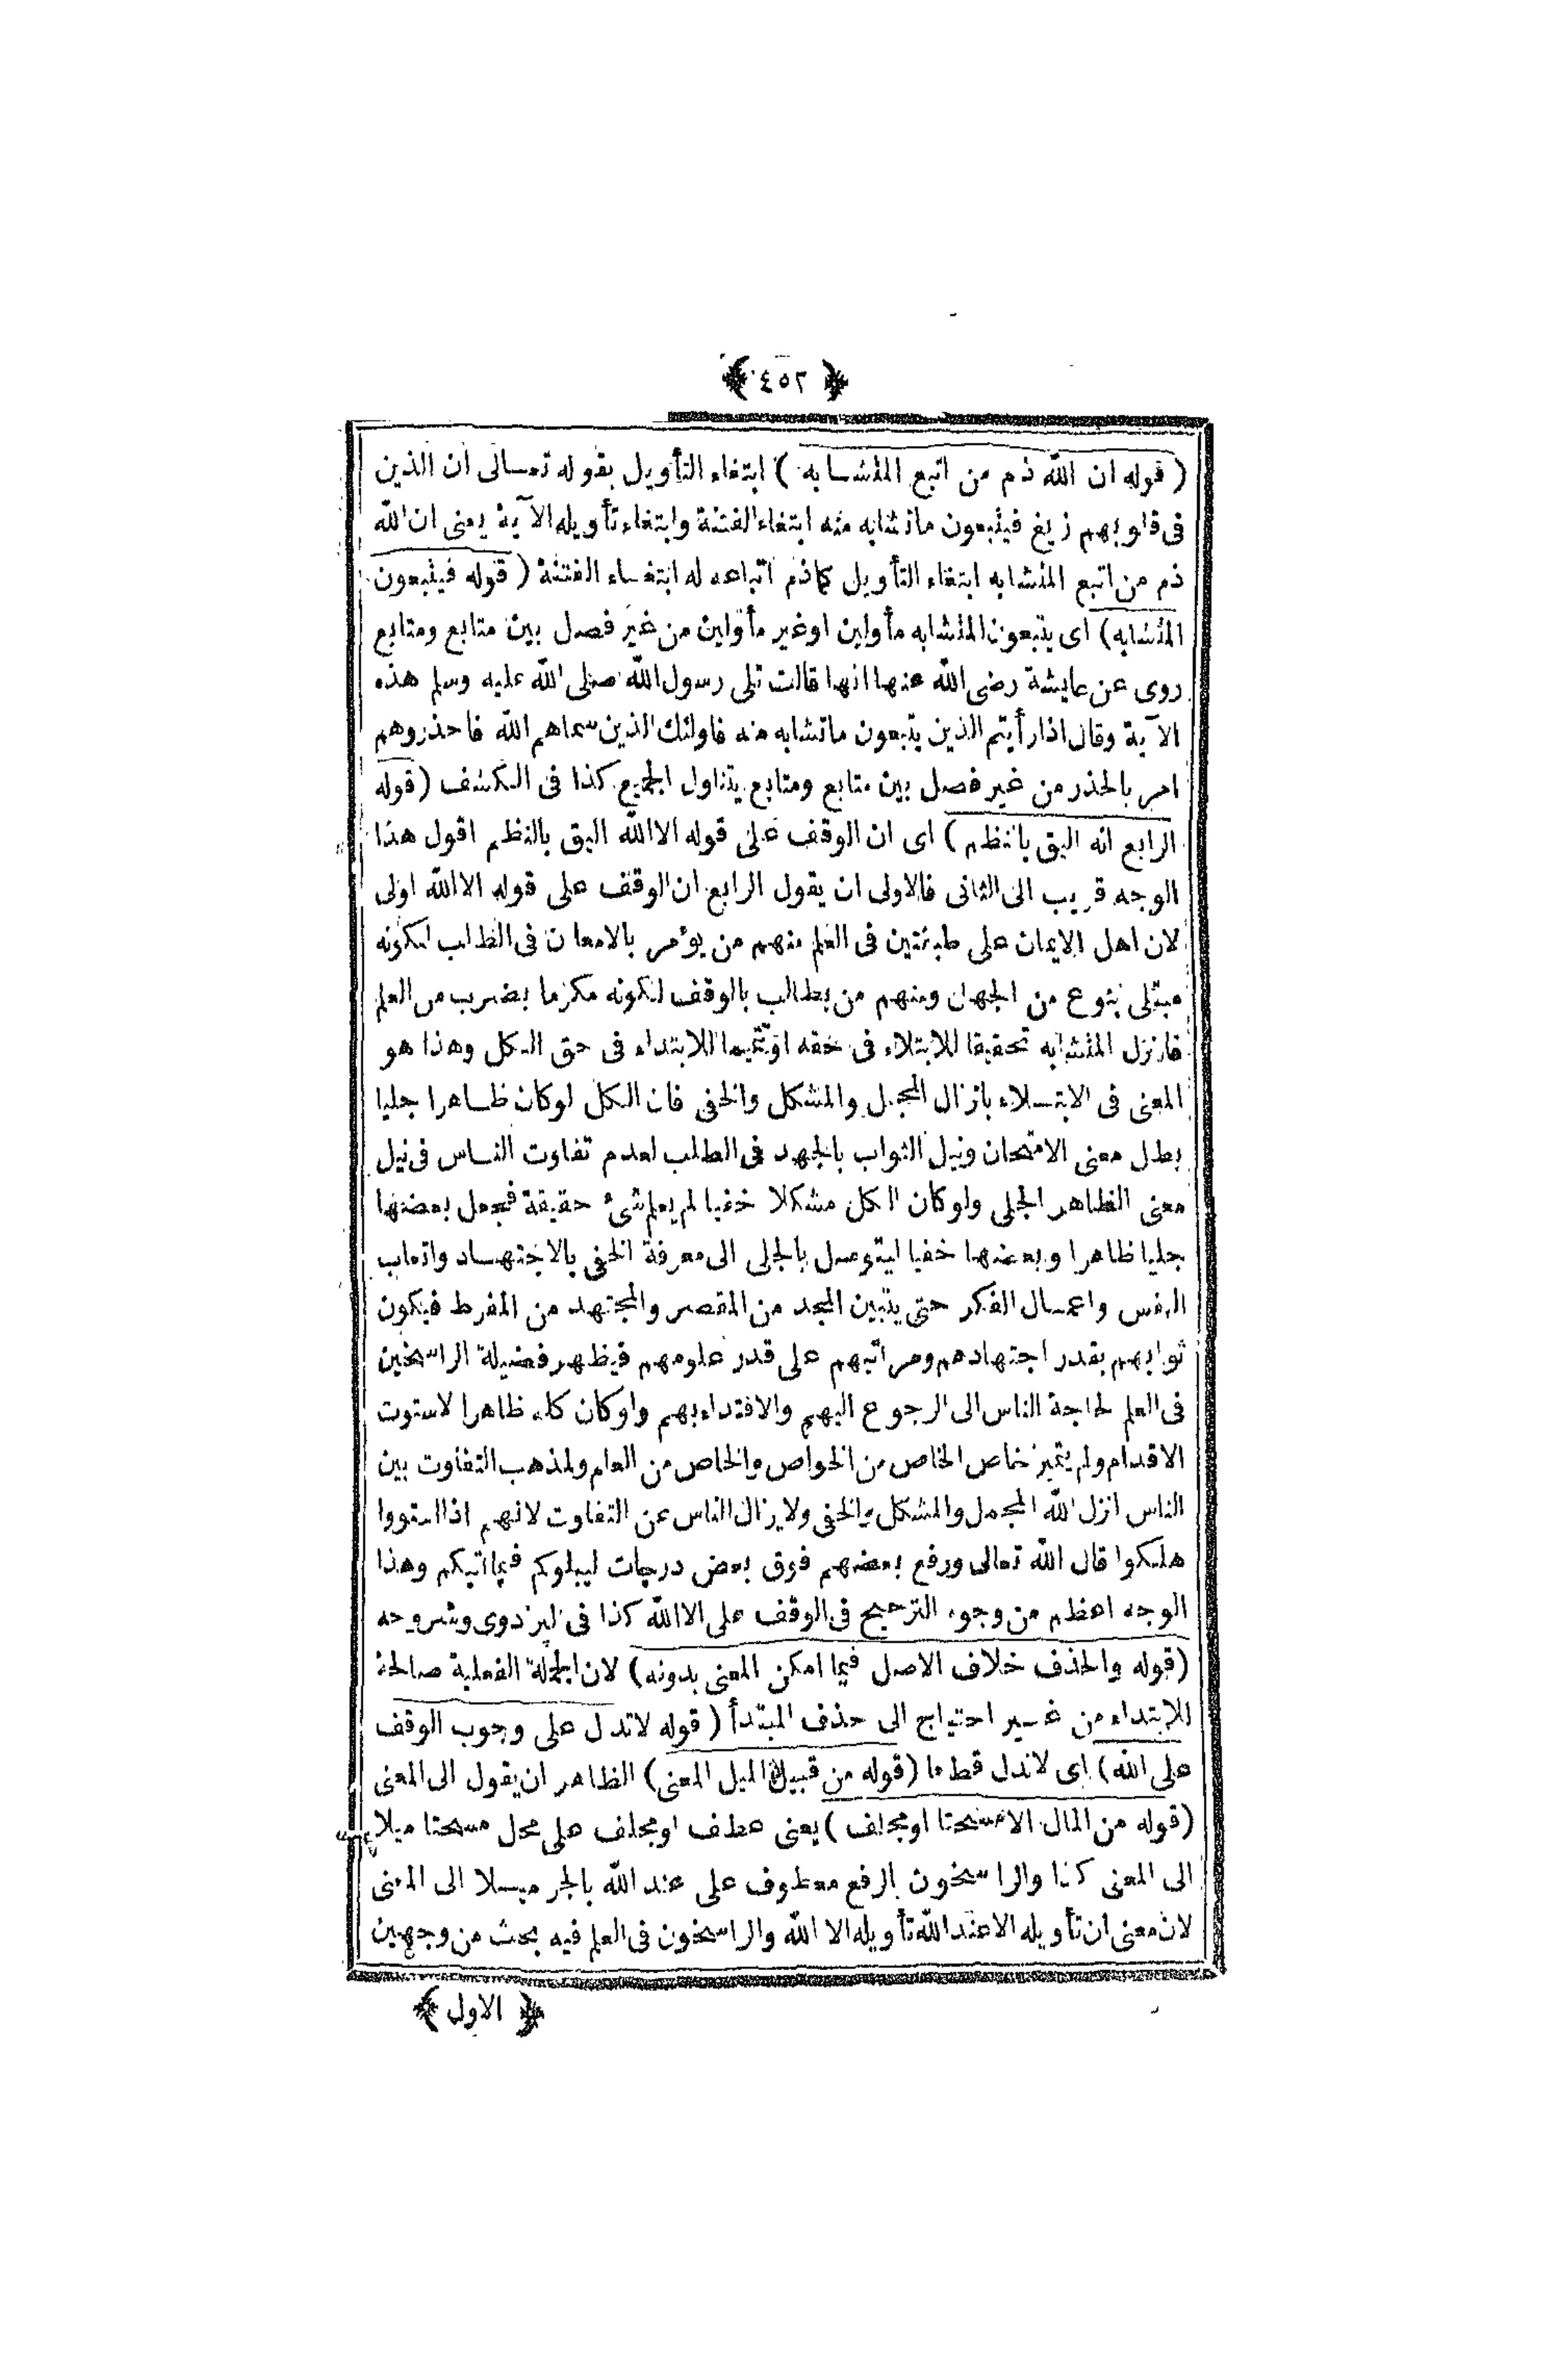 ﴿ ٤٥٢ ﴾
( قوله ان الله ذم من اتبع المتشابه ) ابتغاء التأويل بقوله تعالى ان الذين
فى قلوبهم زيغ فيتبعون ماتشابه منه ابتغاء الفتنة وابتغاء تأويله الآية يعنى ان الله
ذم من اتبع المتشابه ابتغاء التأويل كماذم اتباعه له ابتغاء الفتنة ( قوله فيتبعون
المتشابه ) اى يتبعون المتشابه مأولين اوغير مأولين من غير فصل بين متابع ومتابع
روى عن عايشة رضى الله عنها انها قالت تلى رسول الله صلى الله عليه وسلم هذه
الآية وقال اذا رأيتم الذين يتبعون ماتشابه منه فاولئك الذين سماهم الله فاحذروهم
امر بالحذر من غير فصل بين متابع ومتابع يتناول الجميع كذا فى الكشف ( قوله
الرابع انه اليق بالنظم ) اى ان الوقف على قوله الاالله اليق بالنظم اقول هذا
الوجه قريب الى الثانى فالاولى ان يقول الرابع ان الوقف على قوله الاالله اولى
لان اهل الايمان على طبقتين فى العلم منهم من يؤمر بالامعان فى الطلب لكونه
مبتلى بنوع من الجهل ومنهم من يطالب بالوقف لكونه مكرما بضرب من العلم
فانزل المتشابه تحقيقا للابتلاء فى حقه او تتميما للابتداء فى حق الكل وهذا هو
المعنى فى الابتلاء بانزال المجمل والمشكل والخفى فان الكل لوكان ظاهرا جليا
بطل معنى الامتحان ونيل الثواب بالجهد فى الطلب لعدم تفاوت الناس فى نيل
معنى الظاهر الجلى ولوكان الكل مشكلا خفيا لم يعلم شئ حقيقة فجعل بعضها
جليا ظاهرا وبعضها خفيا ليتوصل بالجلى الى معرفة الخفى بالاجتهاد واتعاب
النفس واعمال الفكر حتى يتبين المجد من المقصر والمجتهد من المفرط فيكون
ثوابهم بقدر اجتهادهم ومراتبهم على قدر علومهم فيظهر فضيلة الراسخين
فى العلم لحاجة الناس الى الرجوع اليهم والاقتداء بهم ولوكان كله ظاهرا لاستوت
الاقدام ولم يتميز خاص الخاص من الخواص والخاص من العام ولمذهب التفاوت بين
الناس انزل الله المجمل والمشكل والخفى ولايزال الناس عن التفاوت لانهم اذا استووا
هلكوا قال الله تعالى ورفع بعضهم فوق بعض درجات ليبلوكم فيمااتيكم وهذا
الوجه اعظم من وجوه الترجيح فى الوقف على الاالله كذا فى البزدوى وشروحه
( قوله والحذف خلاف الاصل فيما امكن المعنى بدونه ) لان الجملة الفعلية صالحة
للابتداء من غير احتياج الى حذف المبتدأ ( قوله لاتدل على وجوب الوقف
على الله ) اى لاتدل قطعا ( قوله من قبيل الميل المعنى ) الظاهر ان يقول الى المعنى
( قوله من المال الامسحتا اومجلف ) يعنى عطف اومجلف على محل مسحتا ميلا
الى المعنى كذا والراسخون بالرفع معطوف على عند الله بالجر ميلا الى المعنى
لان معنى ان تأويله الاعند الله تأويله الا الله والراسخون فى العلم فيه بحث من وجهين
﴿ الاول ﴾